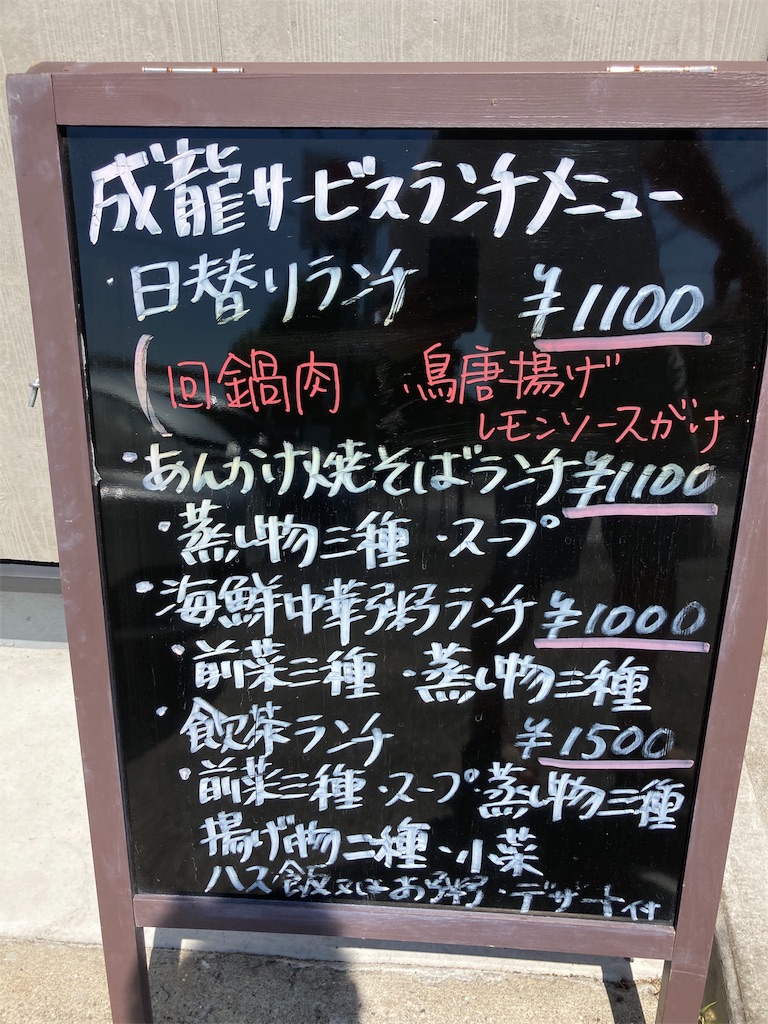 成龍サービスランチメニュー
・日替りランチ ¥1100
(回鍋肉 鳥唐揚げ
レモンソースがけ
・あんかけ焼そばランチ ¥1100
・蒸し物三種・スープ
・海鮮中華粥ランチ ¥1000
・前菜三種・蒸し物三種
・飲茶ランチ ¥1500
・前菜三種・スープ・蒸し物三種
揚げ物二種・小菜
ハス飯又はお粥・デザート付